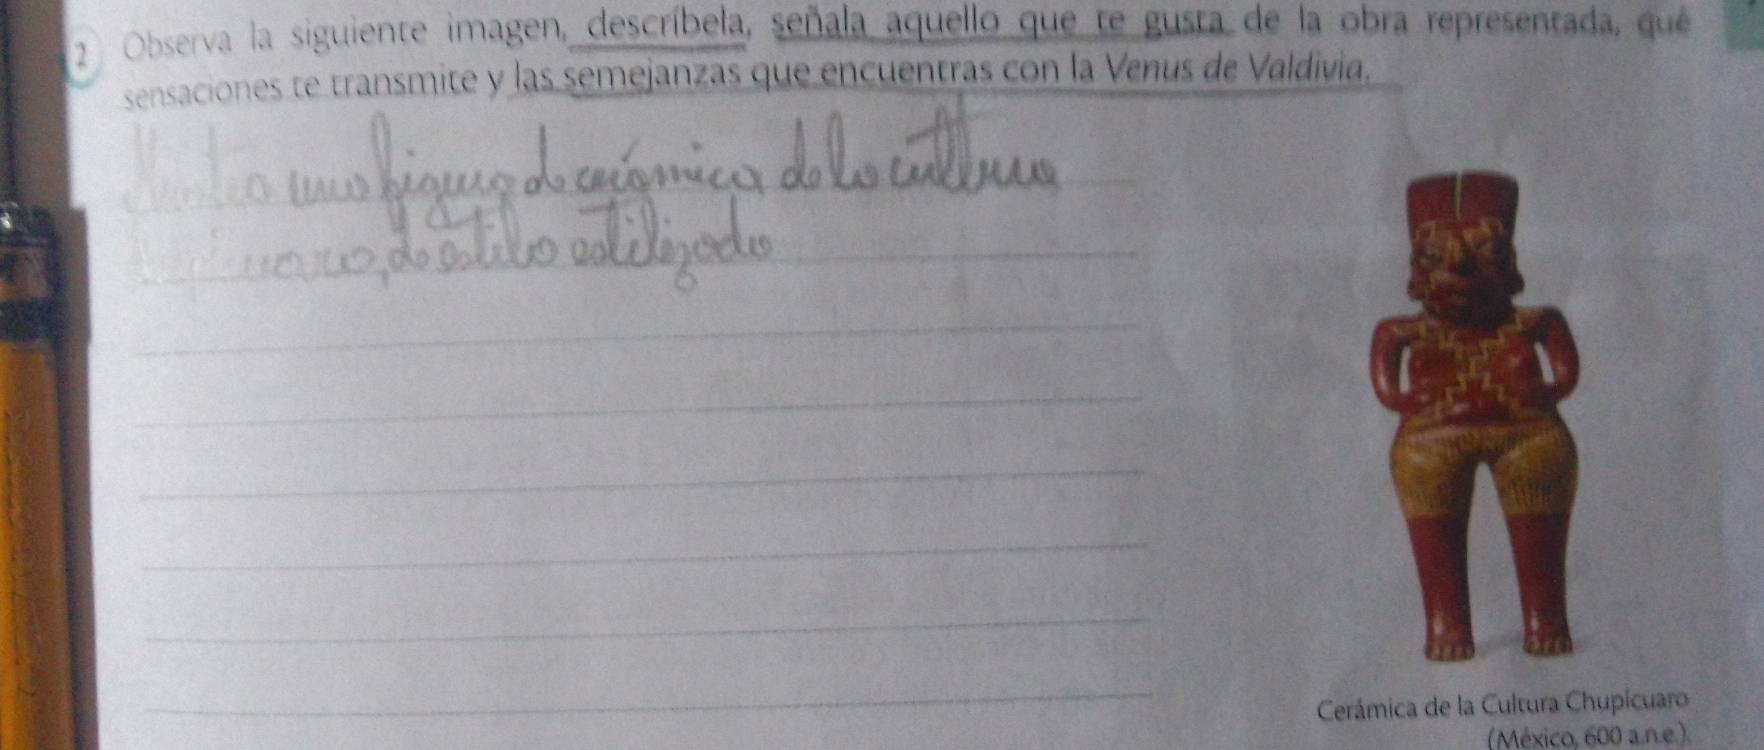 2 Observa la siguiente imagen, descríbela, señala aquello que te gusta de la obra representada, qué
sensaciones te transmite y las semejanzas que encuentras con la Venus de Valdivia.
una figura de cerámica de la cultura
de estilo estilizado
Cerámica de la Cultura Chupícuaro
(México, 600 a.n.e.).